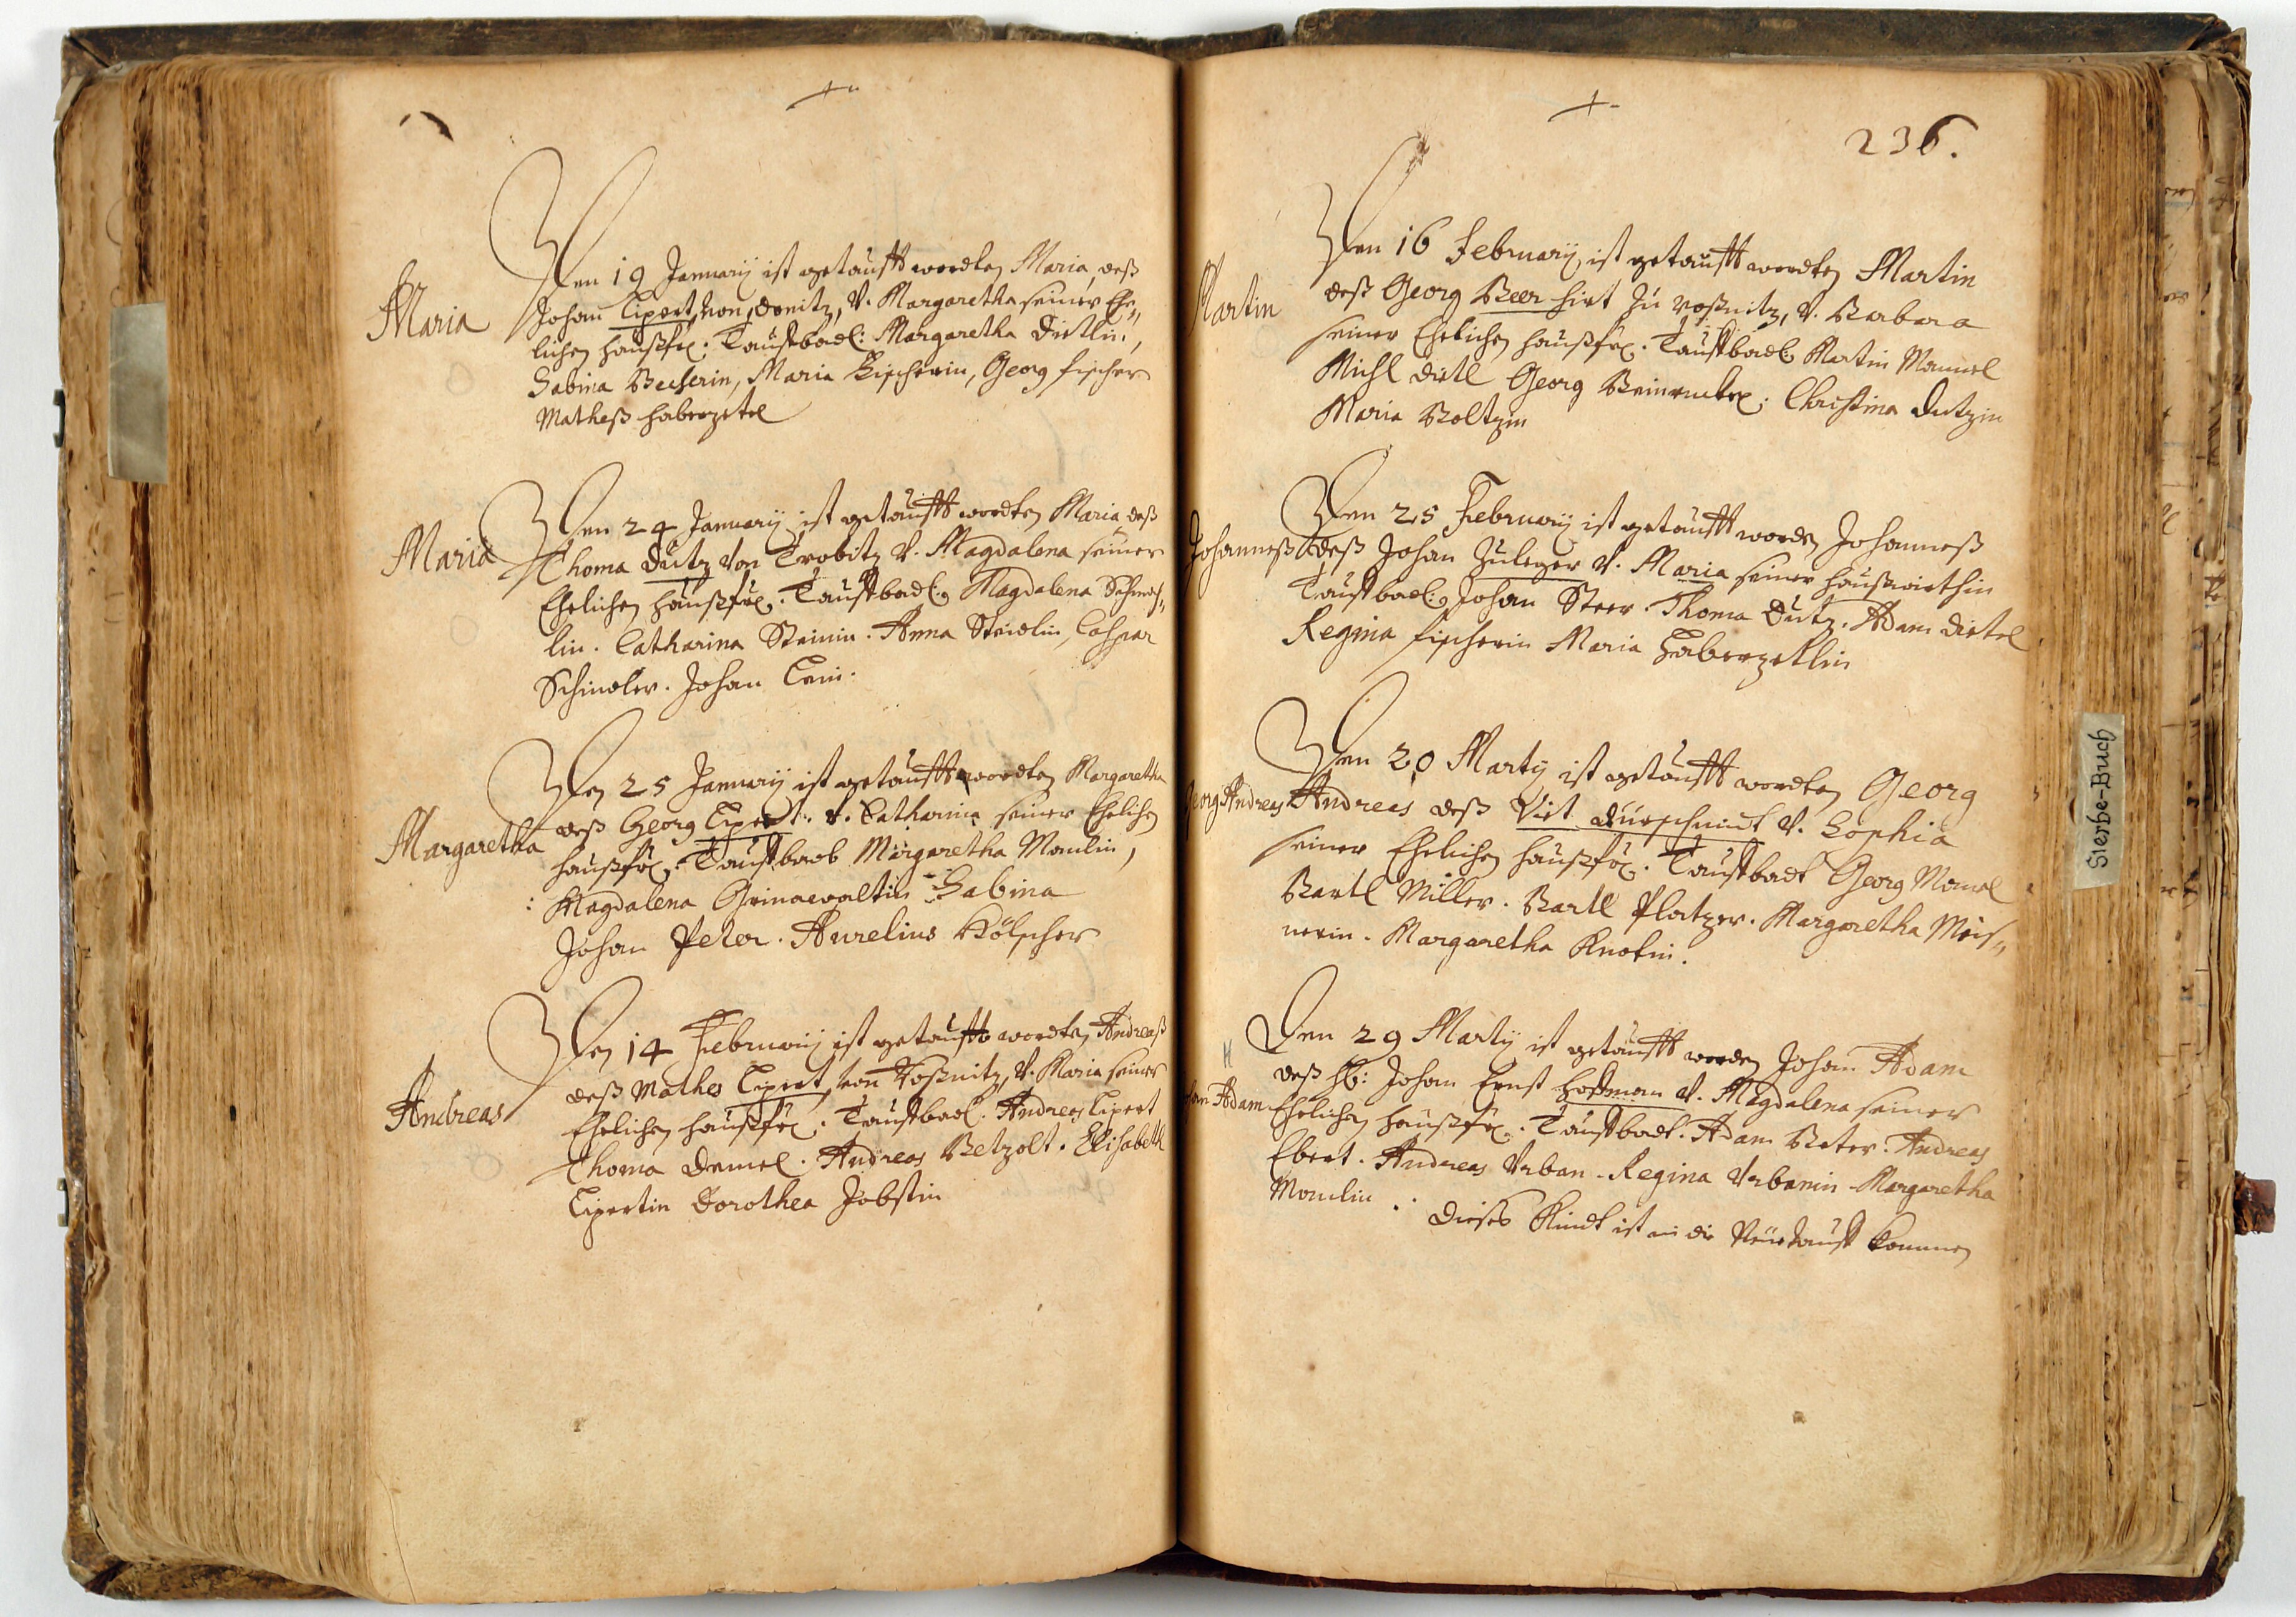 Maria
Den 19 Januarij ist getaufft wordten Maria, deß
Johan Lipert, von Donitz, V. Margaretha seiner Ehe„
lichen haußfr: Tauffbad: Margaretha Dietlin,
Sabina Becherin, Maria Fischerin, Georg fischer
Matheß haberzetel
Maria
Den 24 Januarij ist getaufft wordten Maria deß
Thoma Dutz Von Trobitz V. Magdalena seiner
Ehelichen haußfr. Tauffbad: Magdalena Schmid„
lin. Catharina Steinin. Anna Steidlin, Caspar
Schindler. Johan Lein.
Margaretha
Den 25 Januarij ist getaufft wordten Margaretha
deß Georg Lipert. V. Catharina seiner Ehelichen
haußfr. Tauffbad Margaretha Manlin,
Magdalena Grinaewaltin Sabina
Johan Peter. Aurelius Kölscher
Andreas
Den 14 Februarij ist getaufft wordten Andreaß
deß Mathes Lipert von Roßnitz, V. Maria seiner
Ehelichen haußfr. Tauffbad. Andreas Lipert
Thoma Demel. Andreas Betzolt. Elisabeth
Lipertin Dorothea Jobstin
236.
Martin
Den 16 Februarij ist getaufft wordten Martin
deß Georg Beer hirt zu Roßnitz, V. Barbara
seiner Ehelichen haußfr. Tauffbad: Martin Mannel
Michl Dietl Georg Christina Dutzin
Maria Boltzin
Johanneß
Den 25 Februarij ist getaufft worden Johanneß
deß Johan Zuleger V. Maria seiner haußwirthin
Tauffbad: Johan Steer. Thoma Dutz. Adam Dietel
Regina fischerin Maria Haberzetlin
Georg Andreas
Den 20 Martij ist getaufft wordten Georg
Andreas deß Viet Dürschmidt V. Sophia
seiner Ehelichen haußfr. Tauffbadt Georg Manel
Bartl Miller. Bartl Platzer. Margaretha Meis„
nerin. Margaretha Knotin.
Adam
Den 29 Martij ist getaufft worden Johan Adam
deß H: Johan Ernst Hoffman V. Magdalena seiner
Ehelichen haußfr. Tauffbadt. Adam Beter. Andreas
Ebert. Andreas Urban. Regina Urbanin Margaretha
Manlin.
dieses Kindt ist in die Neue Tauff kommen
Sterbe-Buch